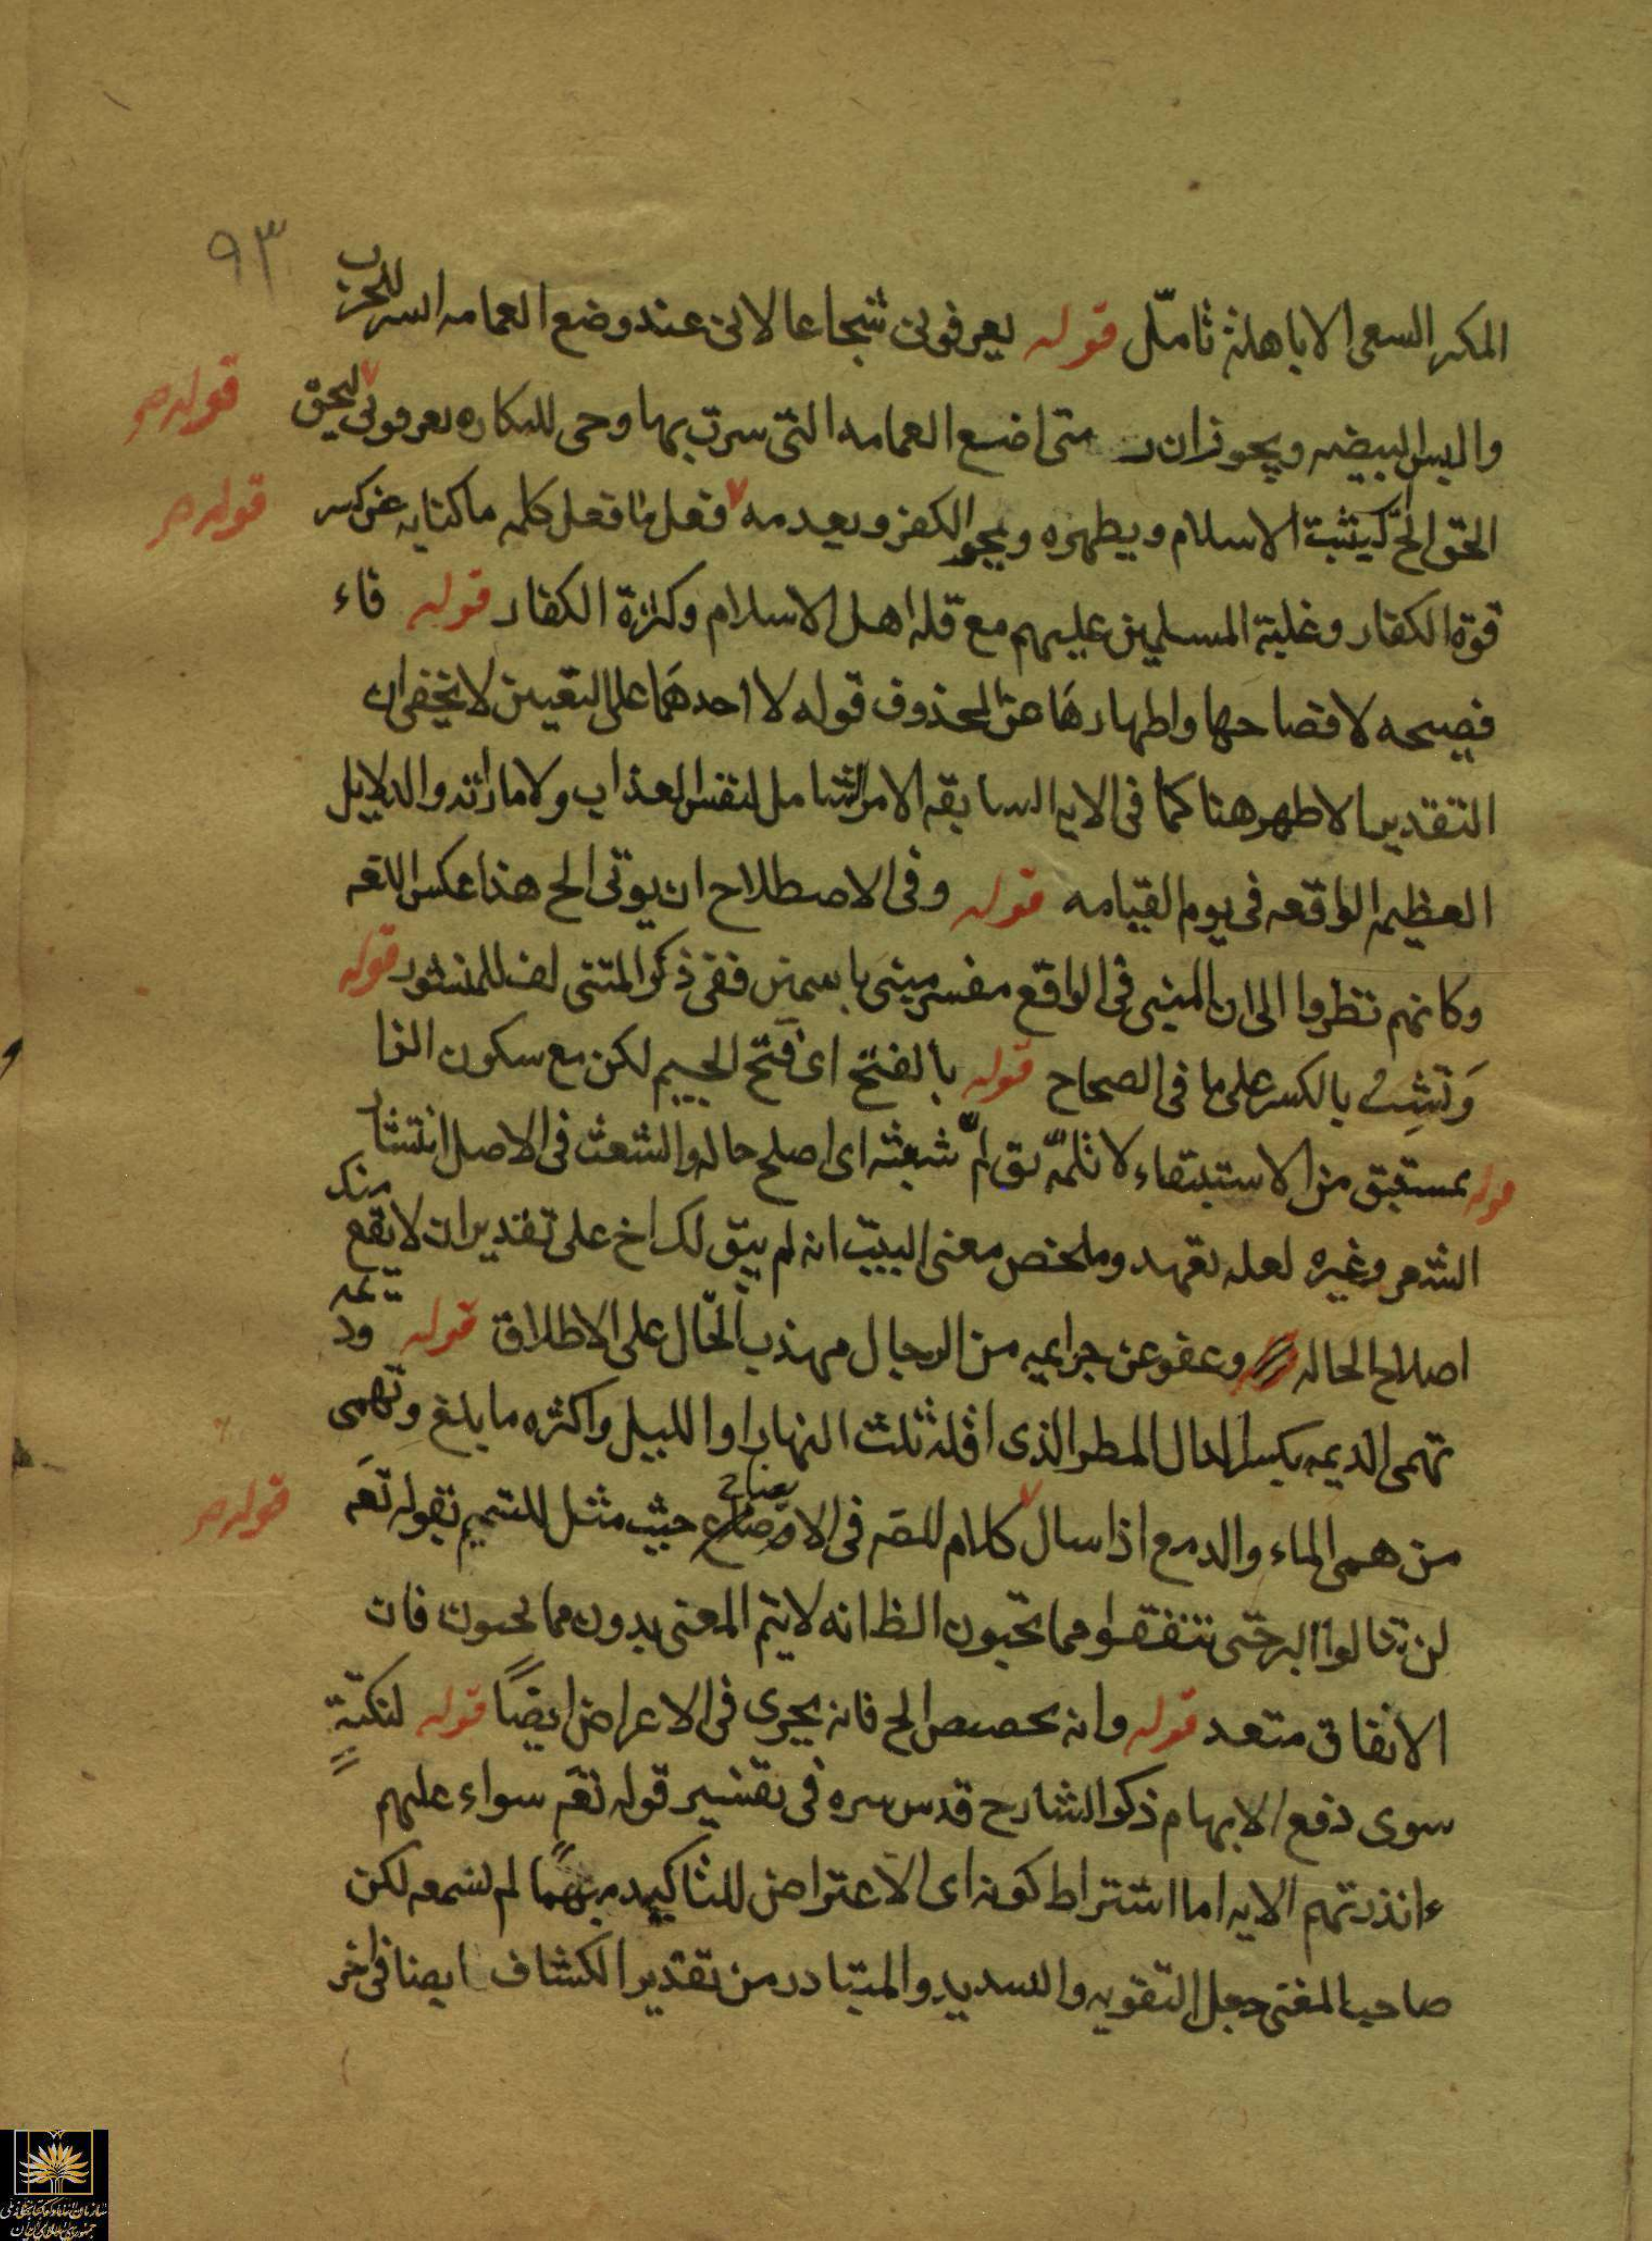 ٩٣
المكر السعى الا باهله تامّل قوله يعرفونى شجاعا لانى عند وضع العمامه البس للحرب
والبس البيضه ويجوز ان متى اضع العمامه التى سرت بها وحى للمكاره تعرفونى ليحق قوله صر
الحق الخ كيثبت الاسلام ويظهره ويمحو الكفر ويعدمه فعل ما فعل كلمه ما كنايه عن كسر قوله صر
قوة الكفار وغلبة المسلمين عليهم مع قله اهل الاسلام وكثرة الكفار قوله فاء
فصيحه لافصاحها واظهارها عن المحذوف قوله لا احدهما على التعيين لا يخفى ان
التقدير الاظهر هنا كما فى الايه السابقه الامر الشامل لنفس العذاب ولاماراته والدلايل
العظيمه الواقعه فى يوم القيامه قوله وفى الاصطلاح ان يوتى الخ هذا عكس اللغه
وكانهم نظروا الى ان المثنى فى الواقع مفسر مبنى باسمين ففى ذكر المثنى لف للمنشور قوله
وَتشِبُ بالكسر على ما فى الصحاح قوله بالفتح اى فتح الجيم لكن مع سكون الفا
قوله بمستبق من الاستبقاء لا تلمّه يق لمّ شعثه اى اصلح حاله والشعث فى الاصل انتشار
الشعر وغيره لعله تعهد وملخص معنى البيت انه لم يبق لك اخ على تقدير ان لا يقع منك
اصلاح الحاله وعفو عن جرايمه من الرجال مهذب الحال على الاطلاق قوله وديمه
تهمى الديمه بكسر الدال المطر الذى اقله ثلث النهار او الليل واكثره ما بلغ وتهمى
من همى الماء والدمع اذا سال كلام للمصه فى الايضاح حيث مثل للتتميم بقوله تعَه قوله صر
لن تنالوا البر حتى تنفقوا مما تحبون الظ انه لا يتم المعنى بدون مما تحبون فان
الانفاق متعد قوله وانه يخصيص الخ فانه يجرى فى الاعراض ايضًا قوله لنكتةٍ
سوى دفع الابهام ذكر الشارح قدس سره فى تفسير قوله تعَه سواء عليهم
ءانذرتهم الايه اما اشتراط كونه اى الاعتراض للتاكيد مبهمًا لم نسمعه لكن
صاحب المغنى جعل التقويه والتسديد والمتبادر من تقدير الكشاف ايضا فى اخر